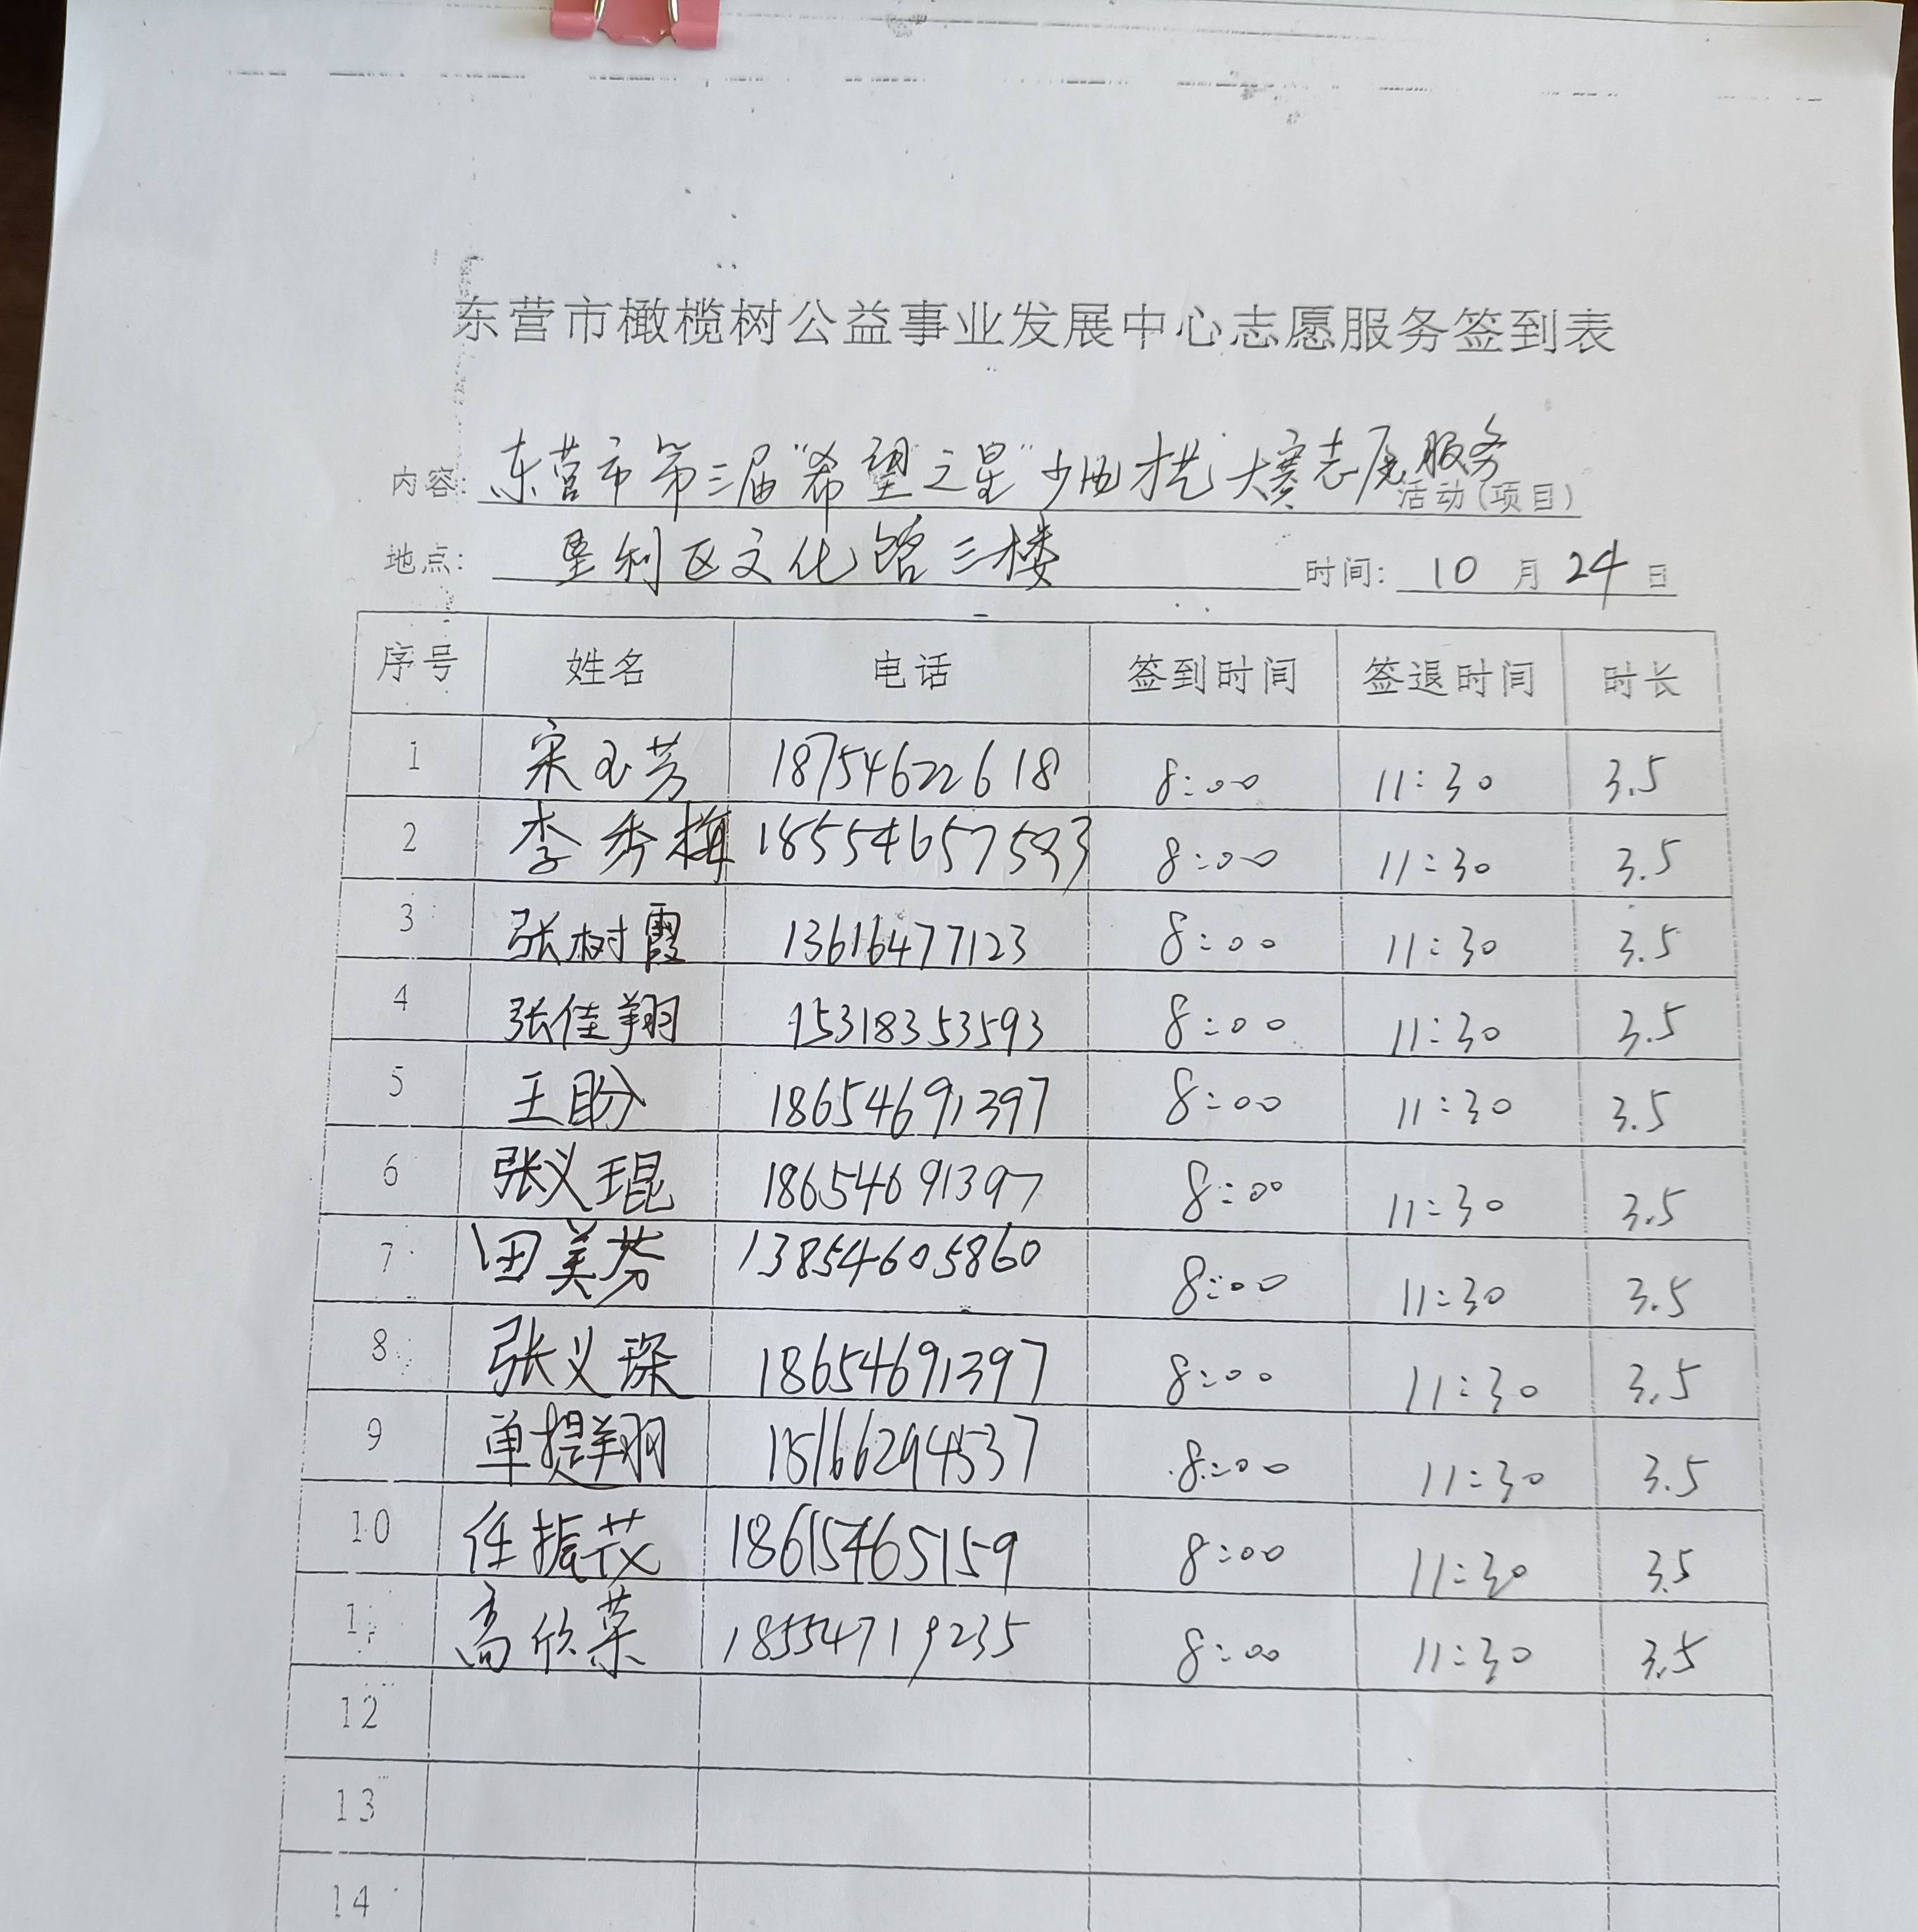 东营市橄榄树公益事业发展中心志愿服务签到表
内容: 东营市第三届“希望之星”少儿才艺大赛志愿服务 活动(项目)
地点: 垦利区文化馆三楼 时间: 10 月 24 日
序号 姓名 电话 签到时间 签退时间 时长
1 宋玉芳 18754622618 8:00 11:30 3.5
2 李秀梅 18554657593 8:00 11:30 3.5
3 张树霞 13616477123 8:00 11:30 3.5
4 张佳翔 15318353593 8:00 11:30 3.5
5 王盼 18654691397 8:00 11:30 3.5
6 张义琨 18654691397 8:00 11:30 3.5
7 田美芬 13854605860 8:00 11:30 3.5
8 张义琛 18654691397 8:00 11:30 3.5
9 单提翔 15166294537 8:00 11:30 3.5
10 任振茂 18615465159 8:00 11:30 3.5
11 高欣荣 18554719235 8:00 11:30 3.5
12
13
14